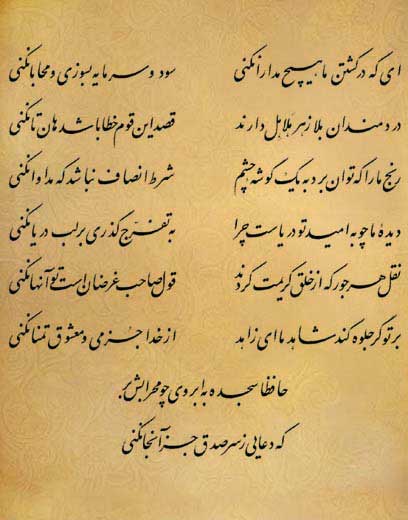 ای که در کشتن ما هیچ مدارا نکنی سود و سرمایه بسوزی و محابا نکنی
دردمندان بلا زهر هلاهل دارند قصد این قوم خطا باشد هان تا نکنی
رنج ما را که توان برد به یک گوشه چشم شرط انصاف نباشد که مداوا نکنی
دیده ما چو به امید تو دریاست چرا به تفرج گذری بر لب دریا نکنی
نقل هر جور که از خلق کریمت کردند قول صاحب غرضان است تو آنها نکنی
بر تو گر جلوه کند شاهد ما ای زاهد از خدا جز می و معشوق تمنا نکنی
حافظا سجده به ابروی چو محرابش بر
که دعایی ز سر صدق جز آنجا نکنی